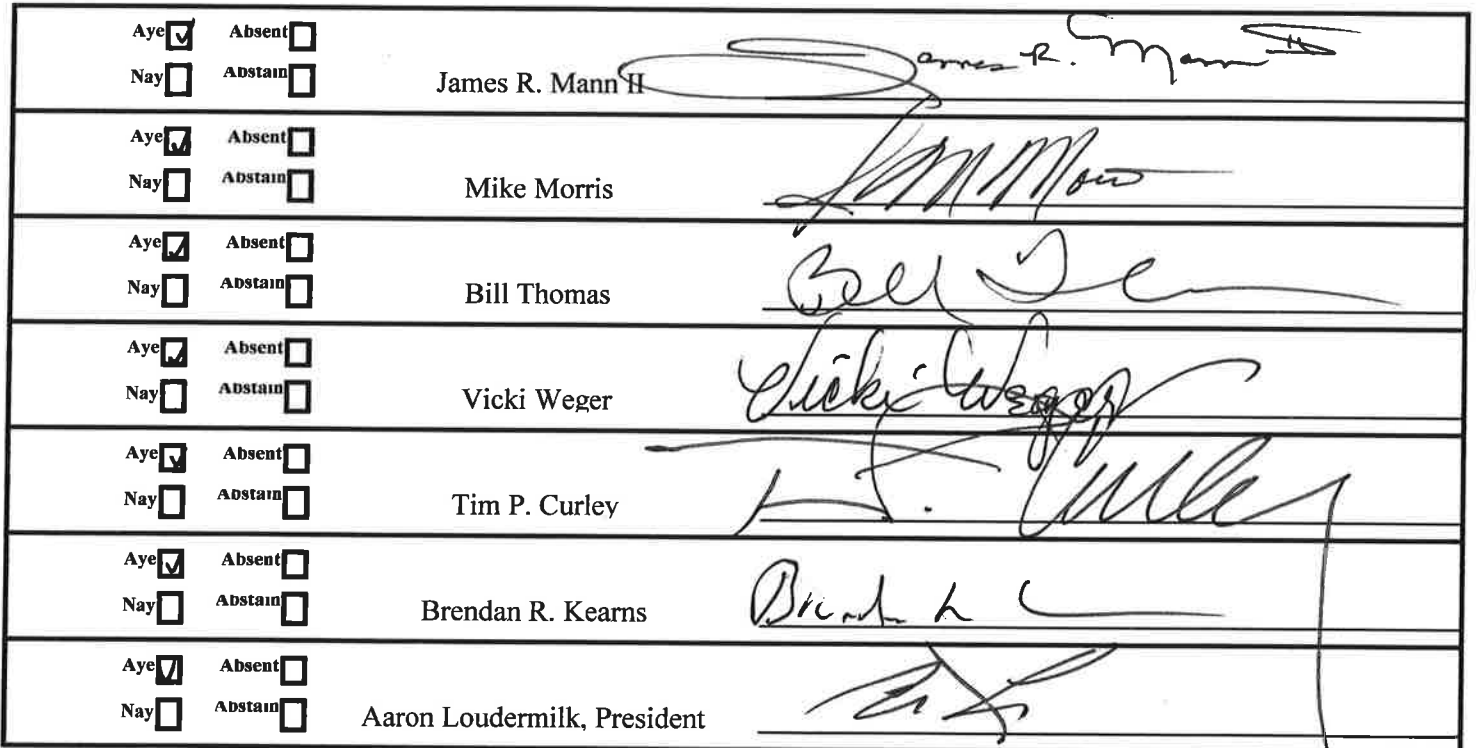 Aye Absent
James R. Mann II
Nay Abstain James R. Mann II
Aye Absent
Nay Abstain Mike Morris
Aye Absent
Nay Abstain Bill Thomas
Bill
Aye Absent
Nay Abstain Vicki Weger
Vicki Weger
Aye Absent
Nay Abstain Tim P. Curley
T. Curley
Aye Absent
Nay Abstain Brendan R. Kearns
Aye Absent
Nay Abstain Aaron Loudermilk, President